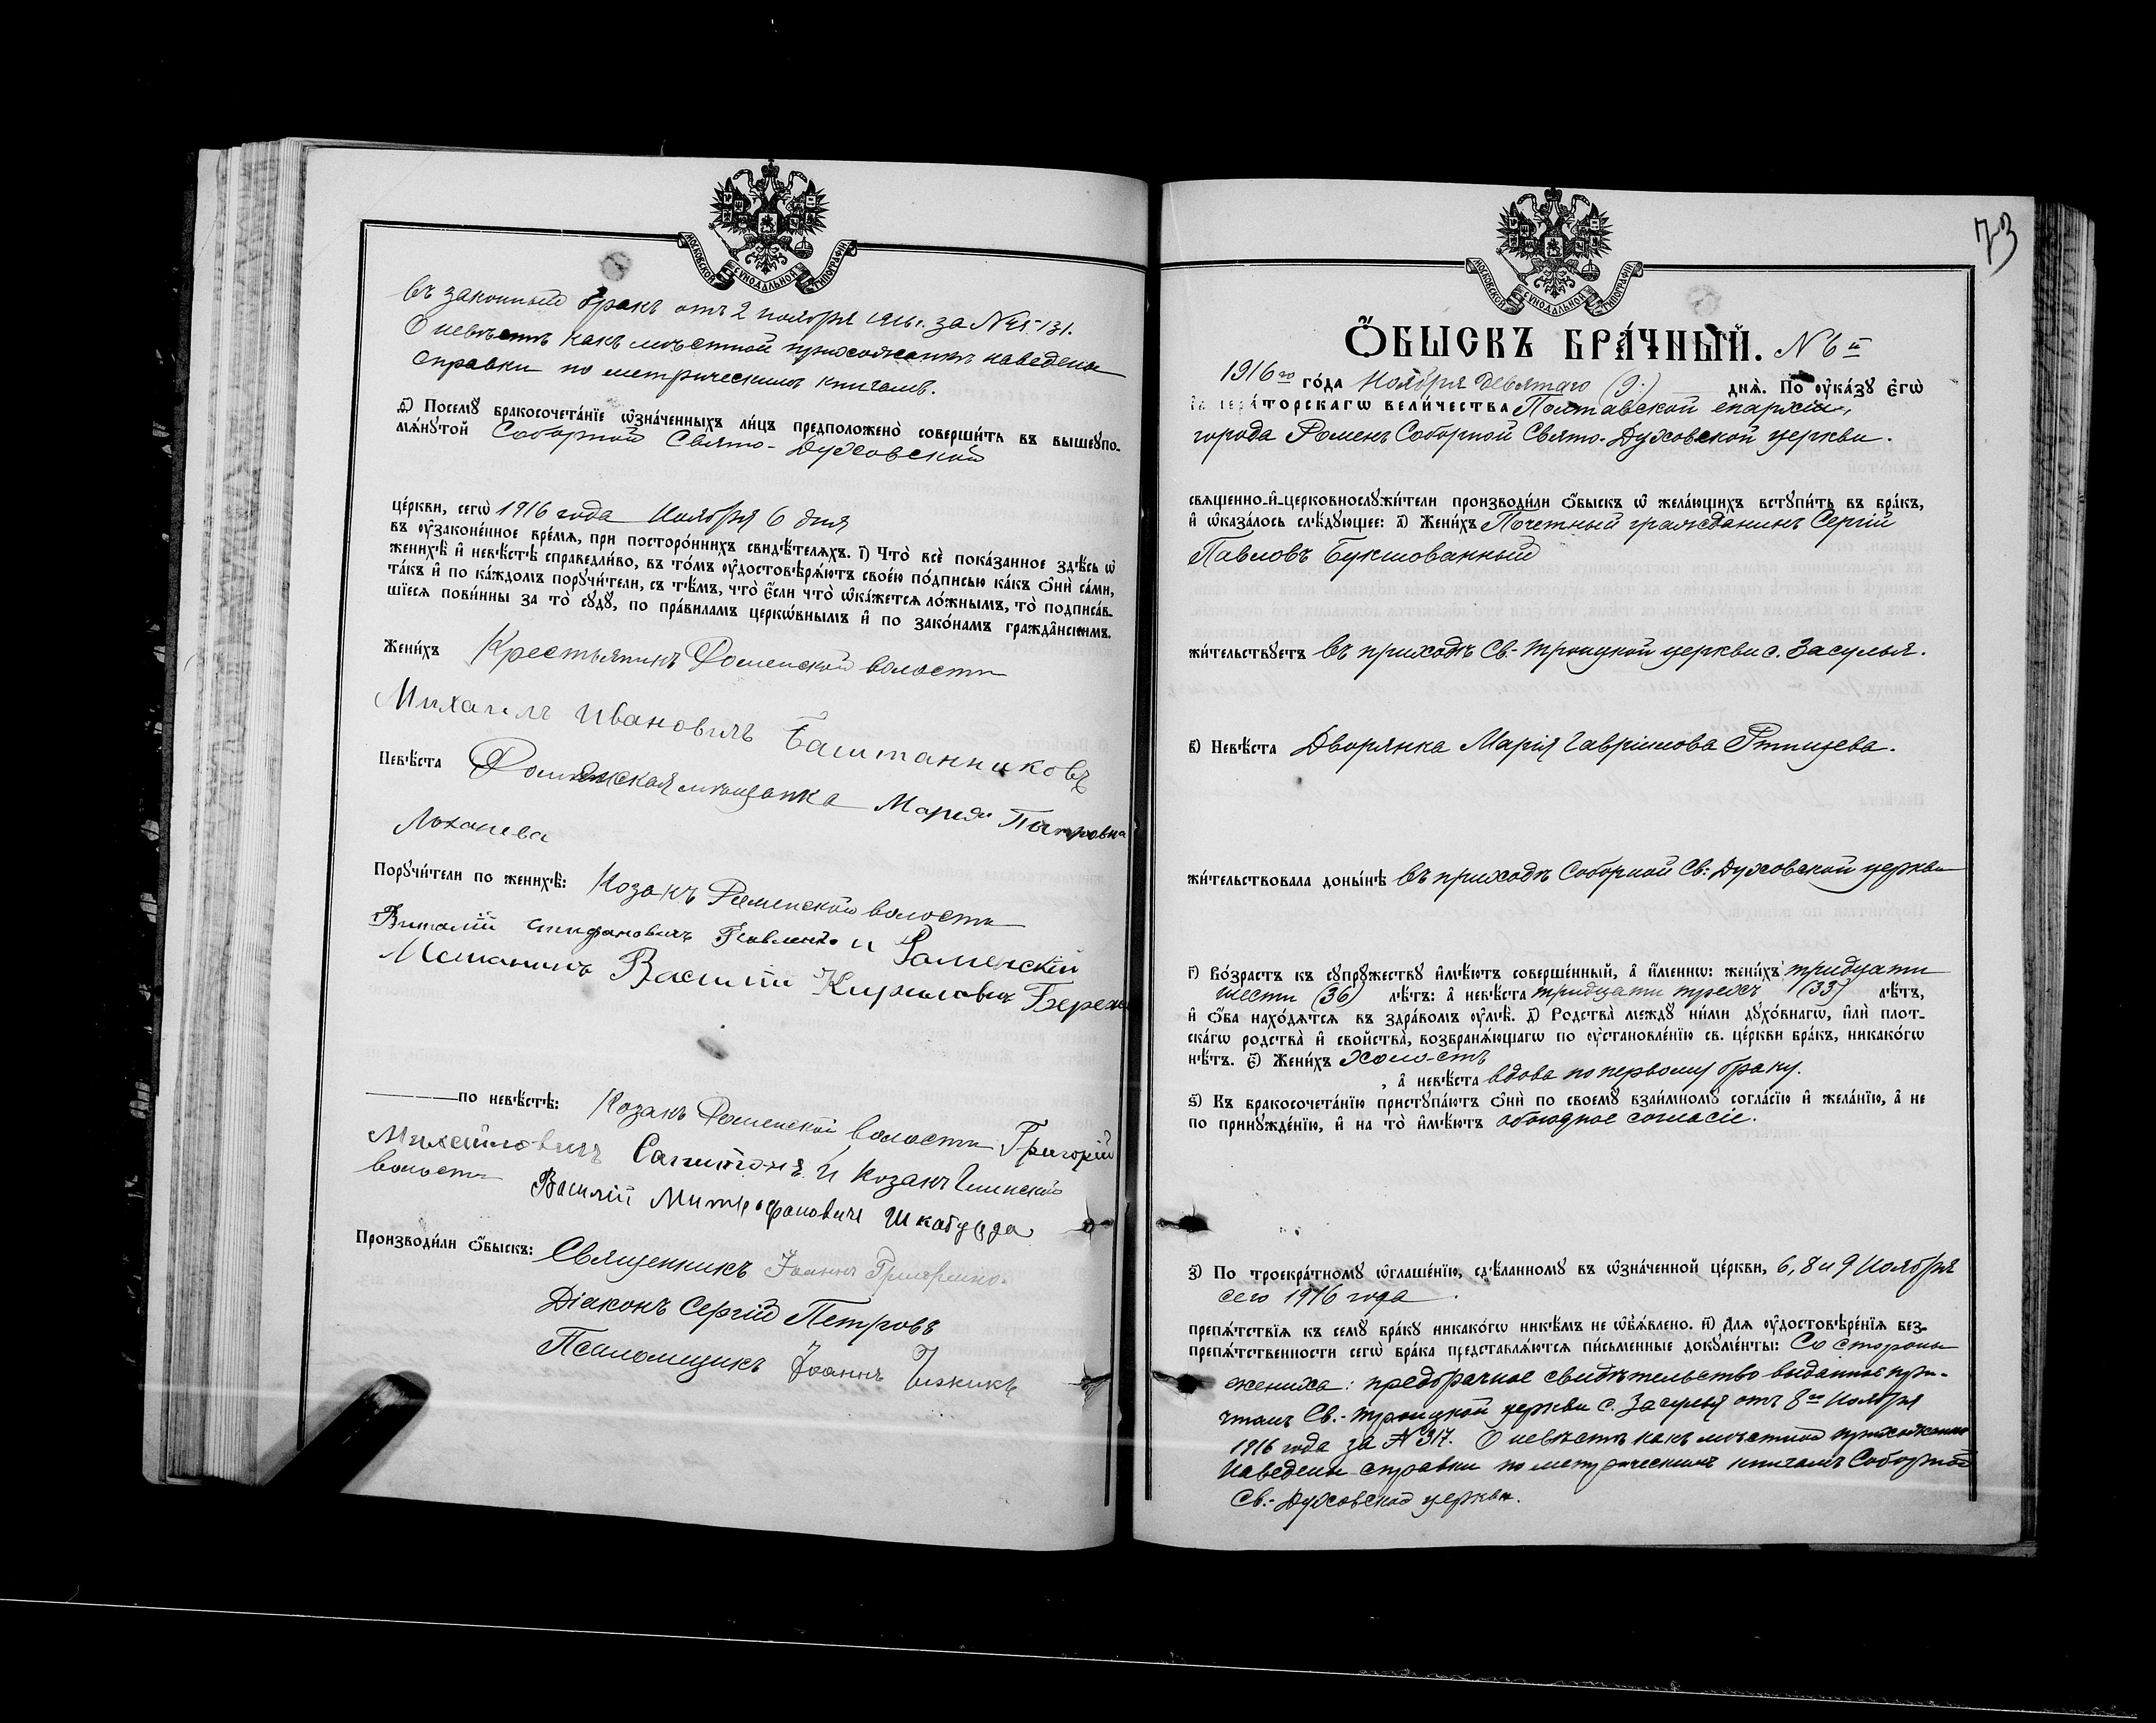 МОСКОВСКОЙ СѴНОДАЛЬНОЙ ТИПОГРАФІИ
въ законный бракъ отъ 2 ноября 1916 г. за № 131.
О невѣстѣ какъ мѣстной прихожанкѣ наведены
справки по метрическимъ книгамъ.
ѳ҃) Посемꙋ бракосочета́нїе ѡ҆зна́ченныхъ ли́цъ предположено̀ соверши́ть въ вышеꙋпо-
мѧ́нꙋтой Соборной Свято-Духовской
це́ркви, сегѡ̀ 1916 года Ноября 6 дня
въ ᲂу҆зако́ненное вре́мѧ, при посторо́ннихъ свидѣ́телѧхъ. і҃) Что̀ всѐ пока́занное здѣ́сь ѡ҆
женихѣ̀ и҆ невѣ́стѣ справедли́во, въ то́мъ ᲂу҆достовѣрѧ́ютъ свое́ю по́дписью ка́къ ѻ҆нѝ са́ми,
та́къ и҆ по ка́ждомъ порꙋчи́тели, съ тѣ́мъ, что̀ є҆́сли что̀ ѡ҆ка́жетсѧ ло́жнымъ, то̀ подписа́в-
шїесѧ пови́нны за то̀ сꙋдꙋ̀, по пра́виламъ церко́внымъ и҆ по зако́намъ гражда́нскимъ.
Жени́хъ Крестьянинъ Роменской волости
Михаилъ Ивановичъ Баштанниковъ
Невѣ́ста Роменская мѣщанка Марія Петровна
Лоханева
Порꙋчи́тели по женихѣ̀: Козакъ Роменской волости
Виталій Стефановичъ Павленко и Роменскій
Мещанинъ Василій Кириловичъ
по невѣ́стѣ: Козакъ Роменской волости Григорій
Михайловичъ и Козакъ
волости Василій Митрофановичъ Шкабура
Производи́ли ѻ҆́быскъ: Священникъ Іоаннъ
Діаконъ Сергій Петровъ
Псаломщикъ Іоаннъ
73
МОСКОВСКОЙ СѴНОДАЛЬНОЙ ТИПОГРАФІИ
Ѻ҆́БЫСКЪ БРА́ЧНЫЙ. № 6й
1916го го́да Ноября девятаго (9.) днѧ̀. По ᲂу҆ка́зꙋ є҆гѡ̀
и҆мпера́торскагѡ вели́чества Полтавской епархіи,
города Роменъ Соборной Свято-Духовской церкви.
свѧще́нно-и҆-церковнослꙋжи́тели производи́ли ѻ҆́быскъ ѡ҆ жела́ющихъ встꙋпи́ть въ бра́къ,
и҆ ѡ҆каза́лось слѣ́дꙋющее: а҃) Жени́хъ Почетный гражданинъ Сергій
Павловъ Букшованный
жи́тельствꙋетъ въ приходѣ Св.-Троицкой церкви с. Засулья.
в҃) Невѣ́ста Дворянка Марія Гавріилова Ртищева.
жи́тельствовала доны́нѣ въ приходѣ Соборной Св: Духовской церкви
г҃) Во́зрастъ къ сꙋпрꙋ́жествꙋ и҆мѣ́ютъ соверше́нный, а҆ и҆́меннѡ: жени́хъ тридцати
шести (36) лѣ́тъ: а҆ невѣ́ста тридцати трехъ (33) лѣ́тъ,
и҆ ѻ҆́ба нахо́дѧтсѧ въ здра́вомъ ᲂу҆мѣ̀. д҃) Родства̀ междꙋ ни́ми дꙋхо́внагѡ, и҆лѝ плот-
ска́гѡ родства̀ и҆ свойства̀, возбранѧ́ющагѡ по ᲂу҆становле́нїю св. це́ркви бра́къ, никако́гѡ
нѣ́тъ. є҃) Жени́хъ холостъ
, а҆ невѣ́ста вдова по первому браку.
ѕ҃) Къ бракосочета́нїю пристꙋпа́ютъ ѻ҆нѝ по своемꙋ̀ взаи́мномꙋ согла́сїю и҆ жела́нїю, а҆ не
по принꙋжде́нїю, и҆ на то̀ и҆мѣ́ютъ обоюдное согласіе.
з҃) По троекра́тномꙋ ѡ҆глаше́нїю, сдѣ́ланномꙋ въ ѡ҆зна́ченной це́ркви, 6, 8 и 9 Ноября
сего 1916 года.
препѧ́тствїѧ къ семꙋ̀ бра́кꙋ никако́гѡ никѣ́мъ не ѡ҆б̾ѧ́влено. и҃) Длѧ ᲂу҆достовѣре́нїѧ без-
препѧ́тственности сегѡ̀ бра́ка представлѧ́ютсѧ пи́сьменные докꙋме́нты: Со стороны
жениха: предбрачное свидѣтельство выданное при-
чтомъ Св.-Троицкой церкви с. Засулья отъ 8го Ноября
1916 года за № 317. О невѣстѣ какъ мѣстной прихожанкѣ
наведены справки по метрическимъ книгамъ Соборной
Св.-Духовской церкви.